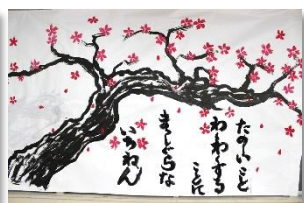 たのしいこと
わくわくする
ことに
まっしぐらな
いちねん